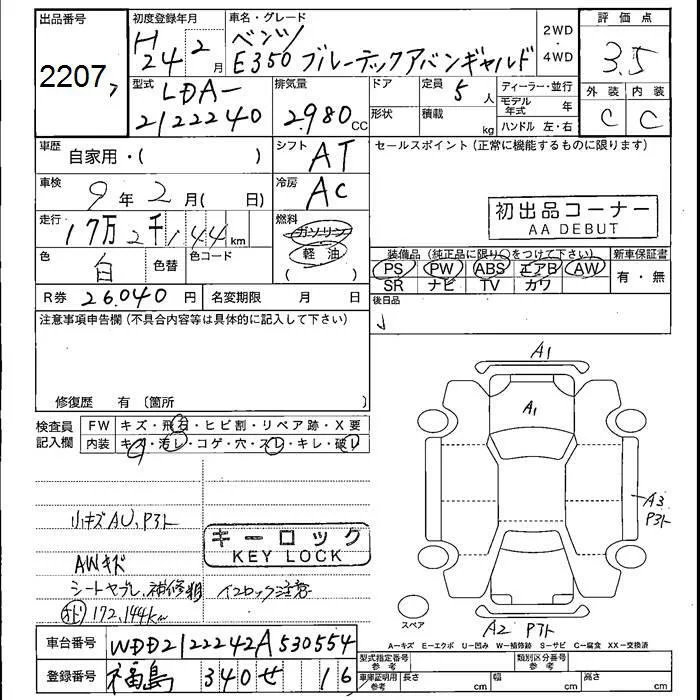 出品番号
2207
初度登録年月
H24 2月
車名・グレード
ベンツ
E350 ブルーテックアバンギャルド
2WD
・
4WD
評価点
3.5
外装 内装
C C
型式
LDA-
212224C
排気量
2,980 CC
ドア
形状
定員 5人
積載 kg
ディーラー・並行
モデル年式 年
ハンドル 左・右
車歴 自家用・( )
シフト AT
セールスポイント(正常に機能するものに限ります)
車検 9年2月( 日)
冷房 AC
初出品コーナー
AA DEBUT
走行 17万2千144 km
燃料 ガソリン
軽油
( )
色 白 色替 色コード
装備品(純正品に限り○をつけて下さい)
PS PW ABS エアB AW
SR ナビ TV カワ
新車保証書
有・無
R券 26,040円 名変期限 月 日
後日品
注意事項申告欄(不具合内容等は具体的に記入して下さい)
修復歴 有 〔箇所 〕
検査員記入欄
FW キズ・飛石・ヒビ割・リペア跡・X要
内装 キズ・汚レ・コゲ・穴・スレ・キレ・破レ
A1
A1
A3
Pタト
A2 Pタト
小キズAU、Pタト
キーロック
KEY LOCK
AWキズ
シートヤブレ、補修粗
イスロック注意
オド 172,144km
スペア
A−キズ E−エクボ U−凹み W−補修跡 S−サビ C−腐食 XX−交換済
車台番号 WDD2122242A530554
登録番号 福島 340 せ 16
型式指定番号 参考
類別区分番号 参考
車庫証明用 参考 長さ cm 幅 cm 高さ cm